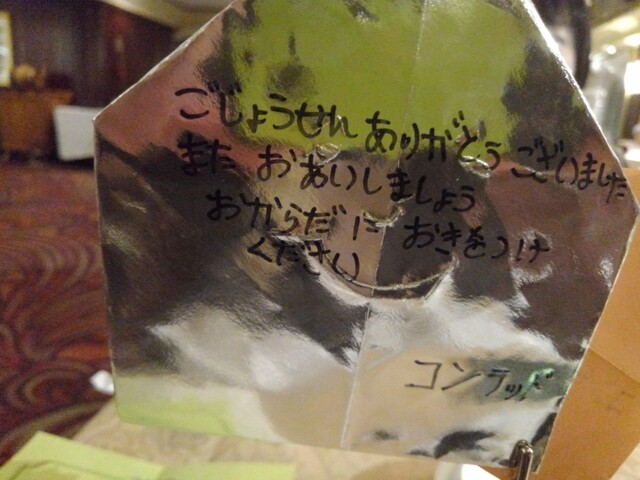 ごじょうせん ありがとう ございました
また おあいしましょう
おからだに おきをつけ
ください
コンラッド